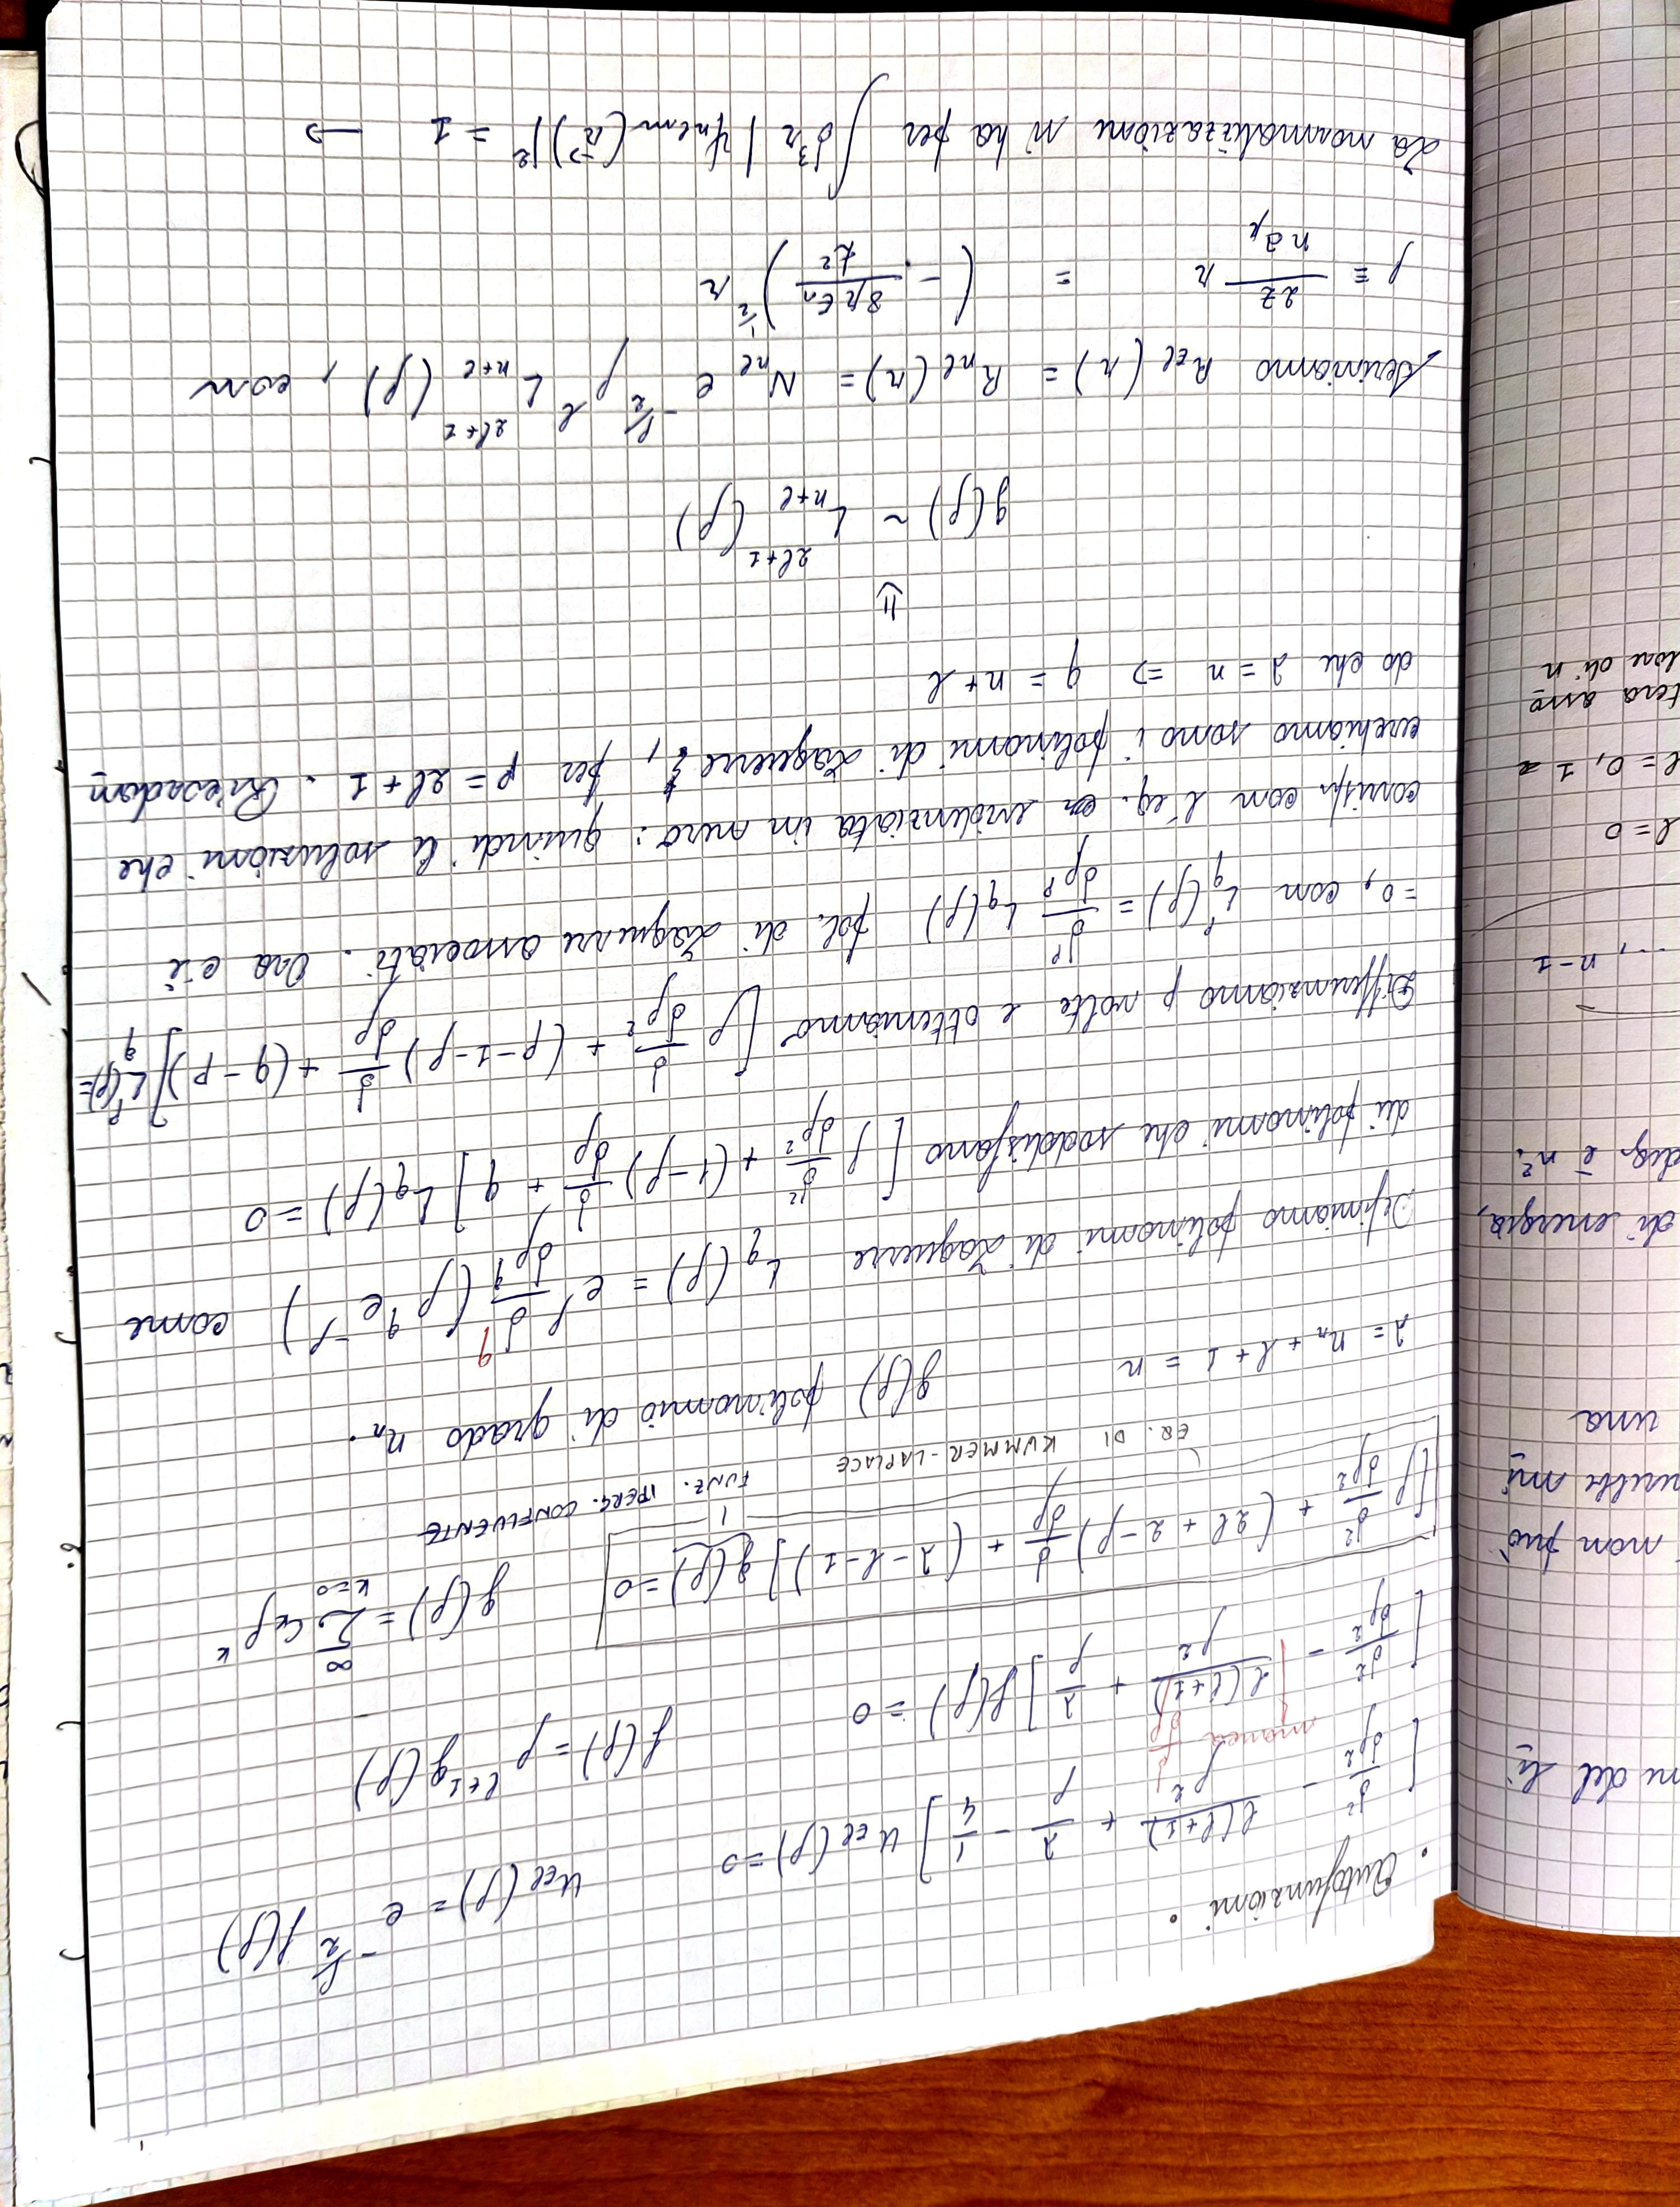 • Autofunzioni •
[d²/dρ² - l(l+1)/ρ² + λ/ρ - 1/4] u_El(ρ) = 0    u_El(ρ) = e^(-ρ/2) f(ρ)
manca d/dρ
[d²/dρ² - l(l+1)/ρ² + λ/ρ] f(ρ) = 0    f(ρ) = ρ^(l+1) g(ρ)
[ρ d²/dρ² + (2l+2-ρ) d/dρ + (λ-l-1)] g(ρ) = 0    g(ρ) = Σ_(k=0)^∞ c_k ρ^k
EQ. DI KUMMER-LAPLACE    FUNZ. IPERG. CONFLUENTE
λ = n_r + l + 1 = n    g(ρ) polinomio di grado n_r.
Definiamo polinomi di Laguerre L_q(ρ) = e^ρ d^q/dρ^q (ρ^q e^-ρ) come
dei polinomi che soddisfano [ρ d²/dρ² + (1-ρ) d/dρ + q] L_q(ρ) = 0
Differenziamo p volte e otteniamo [ρ d/dρ² + (p-1-ρ) d/dρ + (q-p)] L_q^p(ρ) =
= 0, con L_q^p(ρ) = d^p/dρ^p L_q(ρ) pol. di Laguerre associati. Ora c'è
corrisp. con l'eq. evidenziata in nero: quindi le soluzioni che
cerchiamo sono i polinomi di Laguerre, per p = 2l+1. Ricordan
do che λ = n ⇒ q = n + l
⇓
g(ρ) ~ L_(n+l)^(2l+1) (ρ)
Scriviamo R_El(r) = R_nl(r) = N_nl e^(-ρ/2) ρ^l L_(n+l)^(2l+1) (ρ), con
ρ ≡ 2Z/(n a_μ) r = (- 8μE_n/ħ²)^(1/2) r
La normalizzazione si ha per ∫ d³r |ψ_nlm(r⃗)|² = 1 →
ni del li
non può
una
di energia,
deg. è n².
..., n-1
l = 0
l = 0, 1